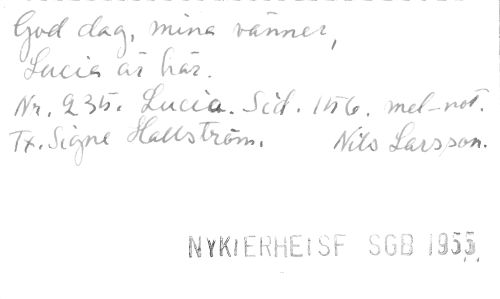 God dag, mina vänner,
Lucia är här.
Nr. 235. Lucia. Sid. 156. mel-not.
Tx. Signe Hallström. Nils Larsson.
NYKIERHEISF SGB 1955